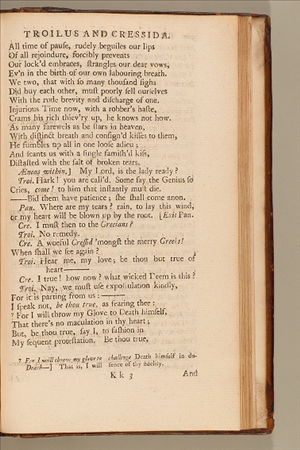 TROILUS AND CRESSIDA.
All time of pause, rudely beguiles our lips
Of all rejoindure, forcibly prevents
Our lock'd embraces, strangles our dear vows,
Ev'n in the birth of our own labouring breath.
We two, that with so many thousand sighs
Did buy each other, must poorly sell ourselves
With the rude brevity and discharge of one.
Injurious Time now, with a robber's haste,
Crams his rich thiev'ry up, he knows not how.
As many farewels as be stars in heaven,
With distinct breath and consign'd kisses to them,
He fumbles up all in one loose adieu;
And scants us with a single famish'd kiss,
Distasted with the salt of broken tears.
Æneas within.] My Lord, is the lady ready?
Troi. Hark! you are call'd. Some say, the Genius so
Cries, come! to him that instantly must die.
——Bid them have patience; she shall come anon.
Pan. Where are my tears? rain, to lay this wind,
or my heart will be blown up by the root. [Exit Pan.
Cre. I must then to the Grecians?
Troi. No remedy.
Cre. A woeful Cressid 'mongst the merry Greeks!
When shall we see again?
Troi. Hear me, my love; be thou but true of
heart——
Cre. I true! how now? what wicked Deem is this?
Troi. Nay, we must use expostulation kindly,
For it is parting from us:——
I speak not, be thou true, as fearing thee:
7 For I will throw my Glove to Death himself,
That there's no maculation in thy heart;
But, be thou true, say I, to fashion in
My sequent protestation. Be thou true,
7 For I will throw my glove to challenge Death himself in de-
Death—] That is, I will fence of thy fidelity.
K k 3 And